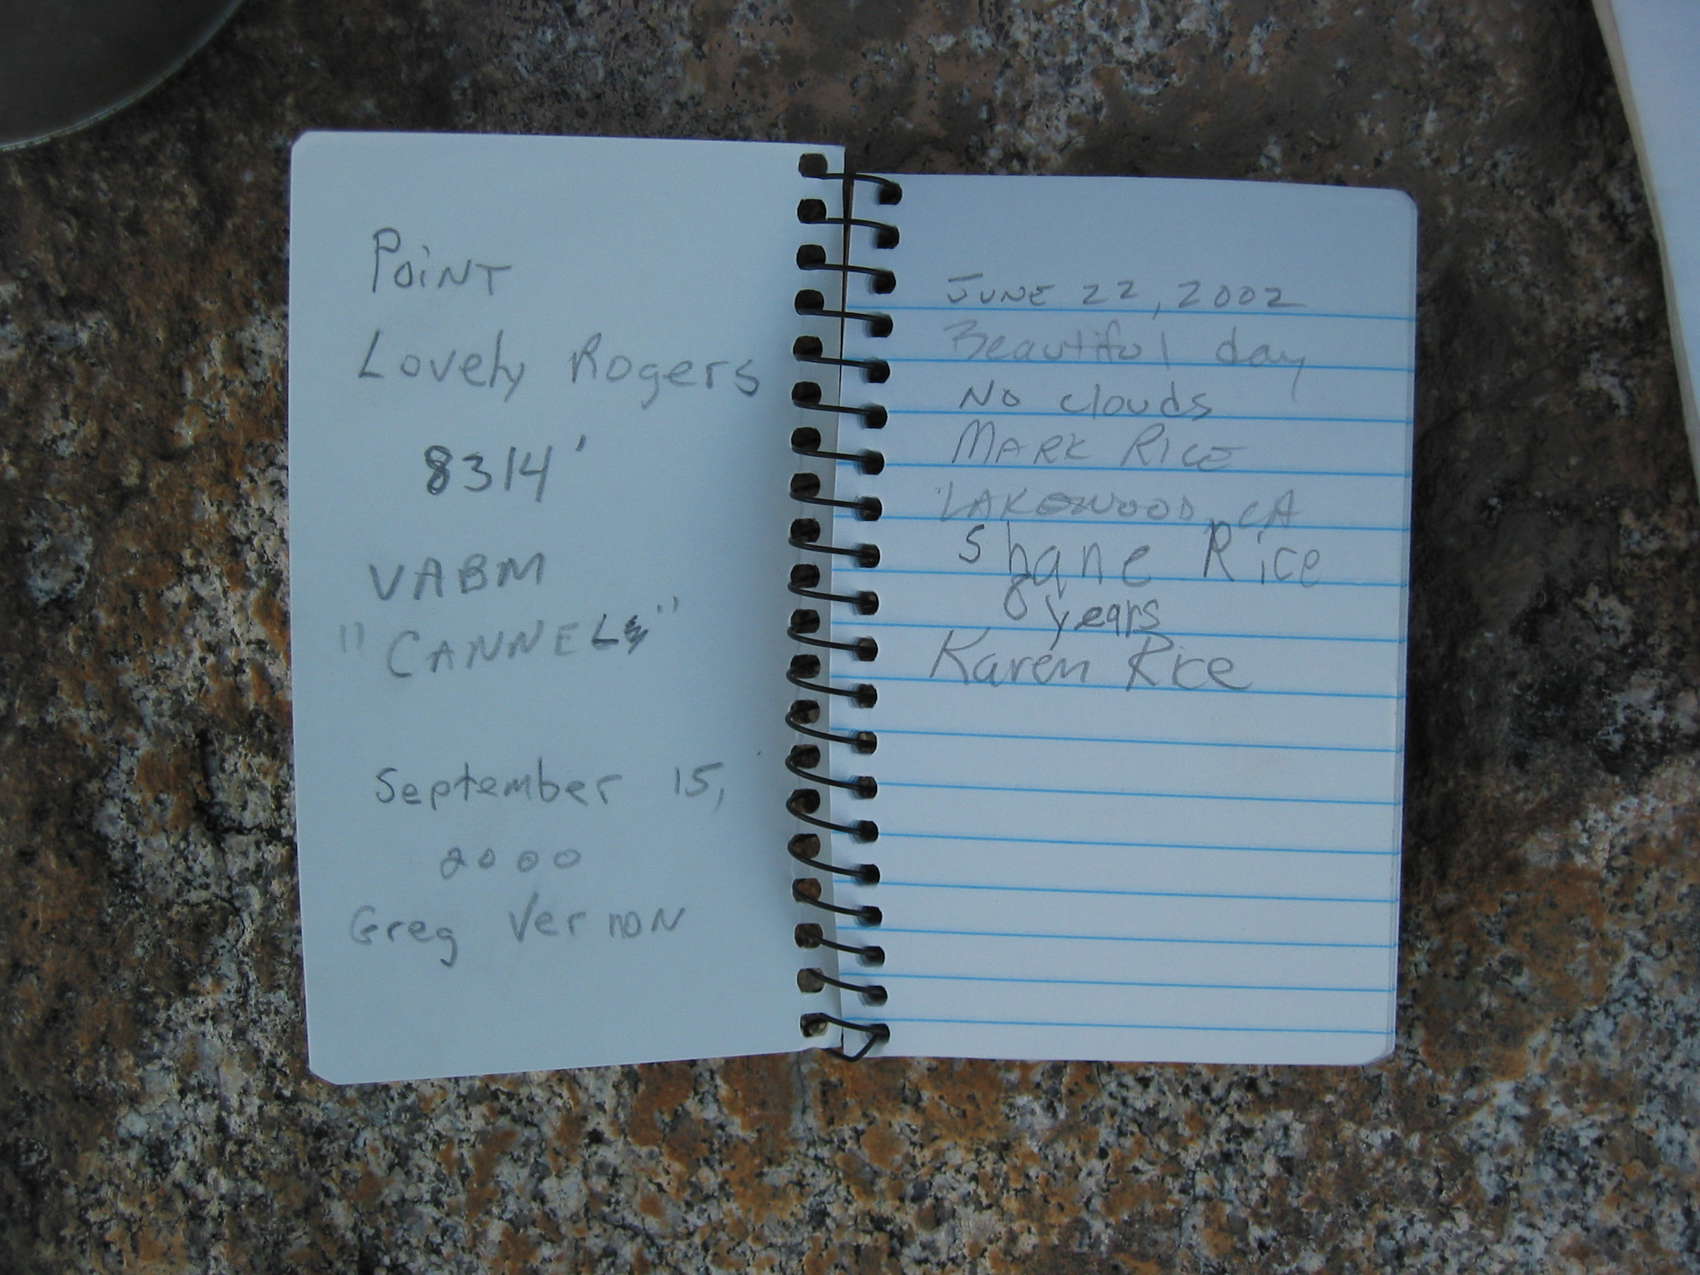 POINT
Lovely Rogers
8314'
VABM
"CANNELL"
September 15,
2000
Greg Vernon
JUNE 22, 2002
Beautiful day
No clouds
MARK RICE
LAKEWOOD, CA
Shane Rice
8 years
Karen Rice